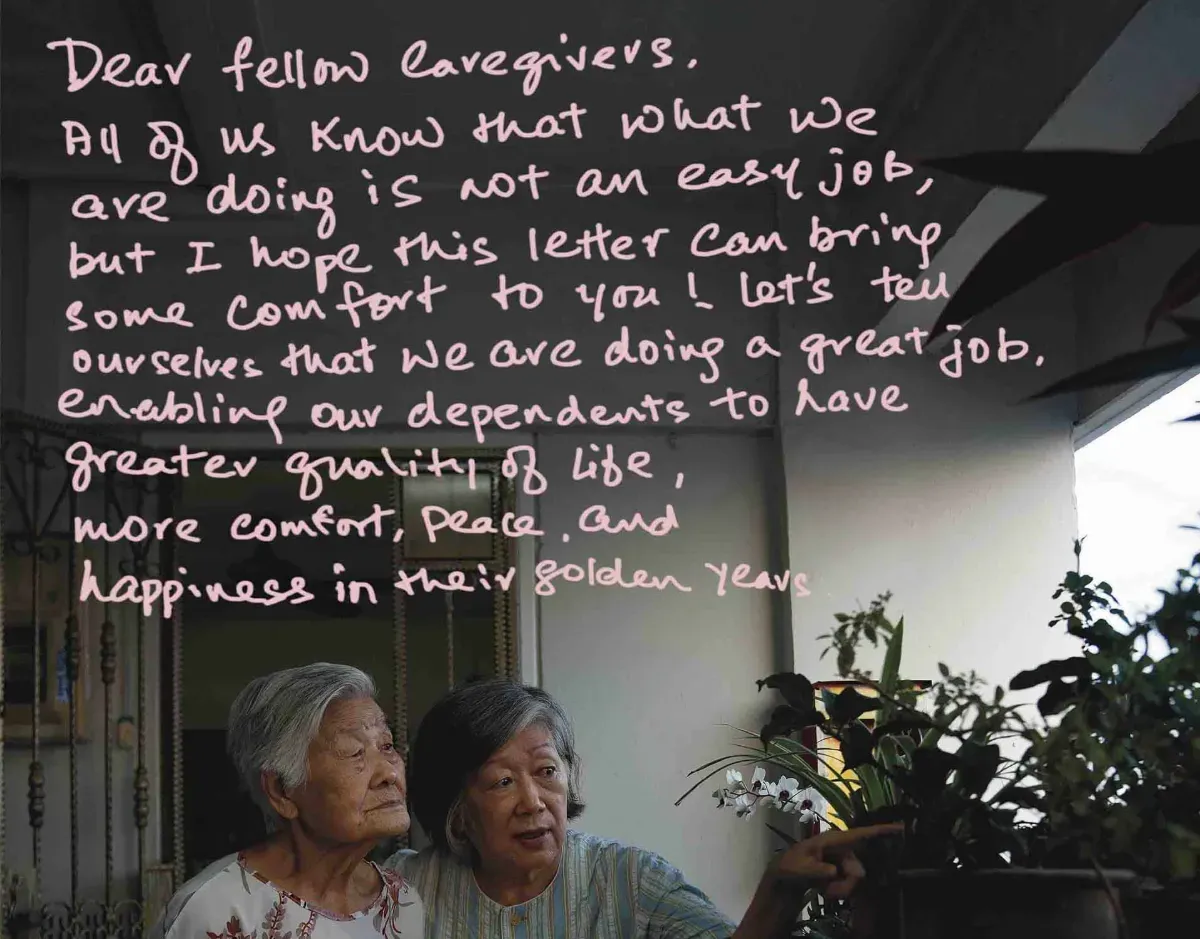 Dear fellow Caregivers.
All of us know that what we
are doing is not an easy job,
but I hope this letter can bring
some comfort to you! Let's tell
ourselves that we are doing a great job,
enabling our dependents to have
greater quality of life,
more comfort, peace, and
happiness in their golden years